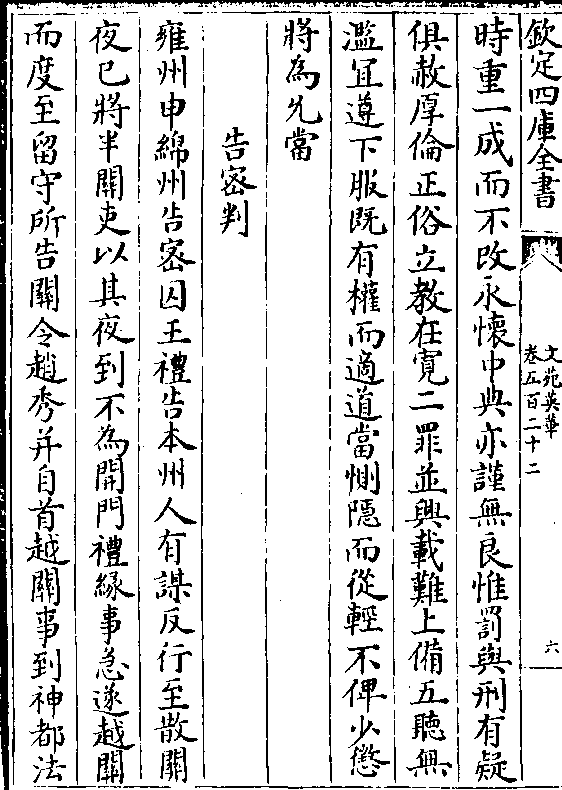 欽定四庫全書
文苑英華
卷五百二十二
六
時重一成而不改永懷中典亦謹無良惟罰與刑有疑
俱赦厚倫正俗立教在寛二罪並興載難上備五聽無
濫宜遵下服既有權而適道當惻隠而從輕不俾少懲
將為允當
告密判
雍州申綿州告密囚王禮告本州人有謀反行至散關
夜已將半關吏以其夜到不為開門禮緣事急遂越關
而度至留守所告關令趙秀并自首越關事到神都法